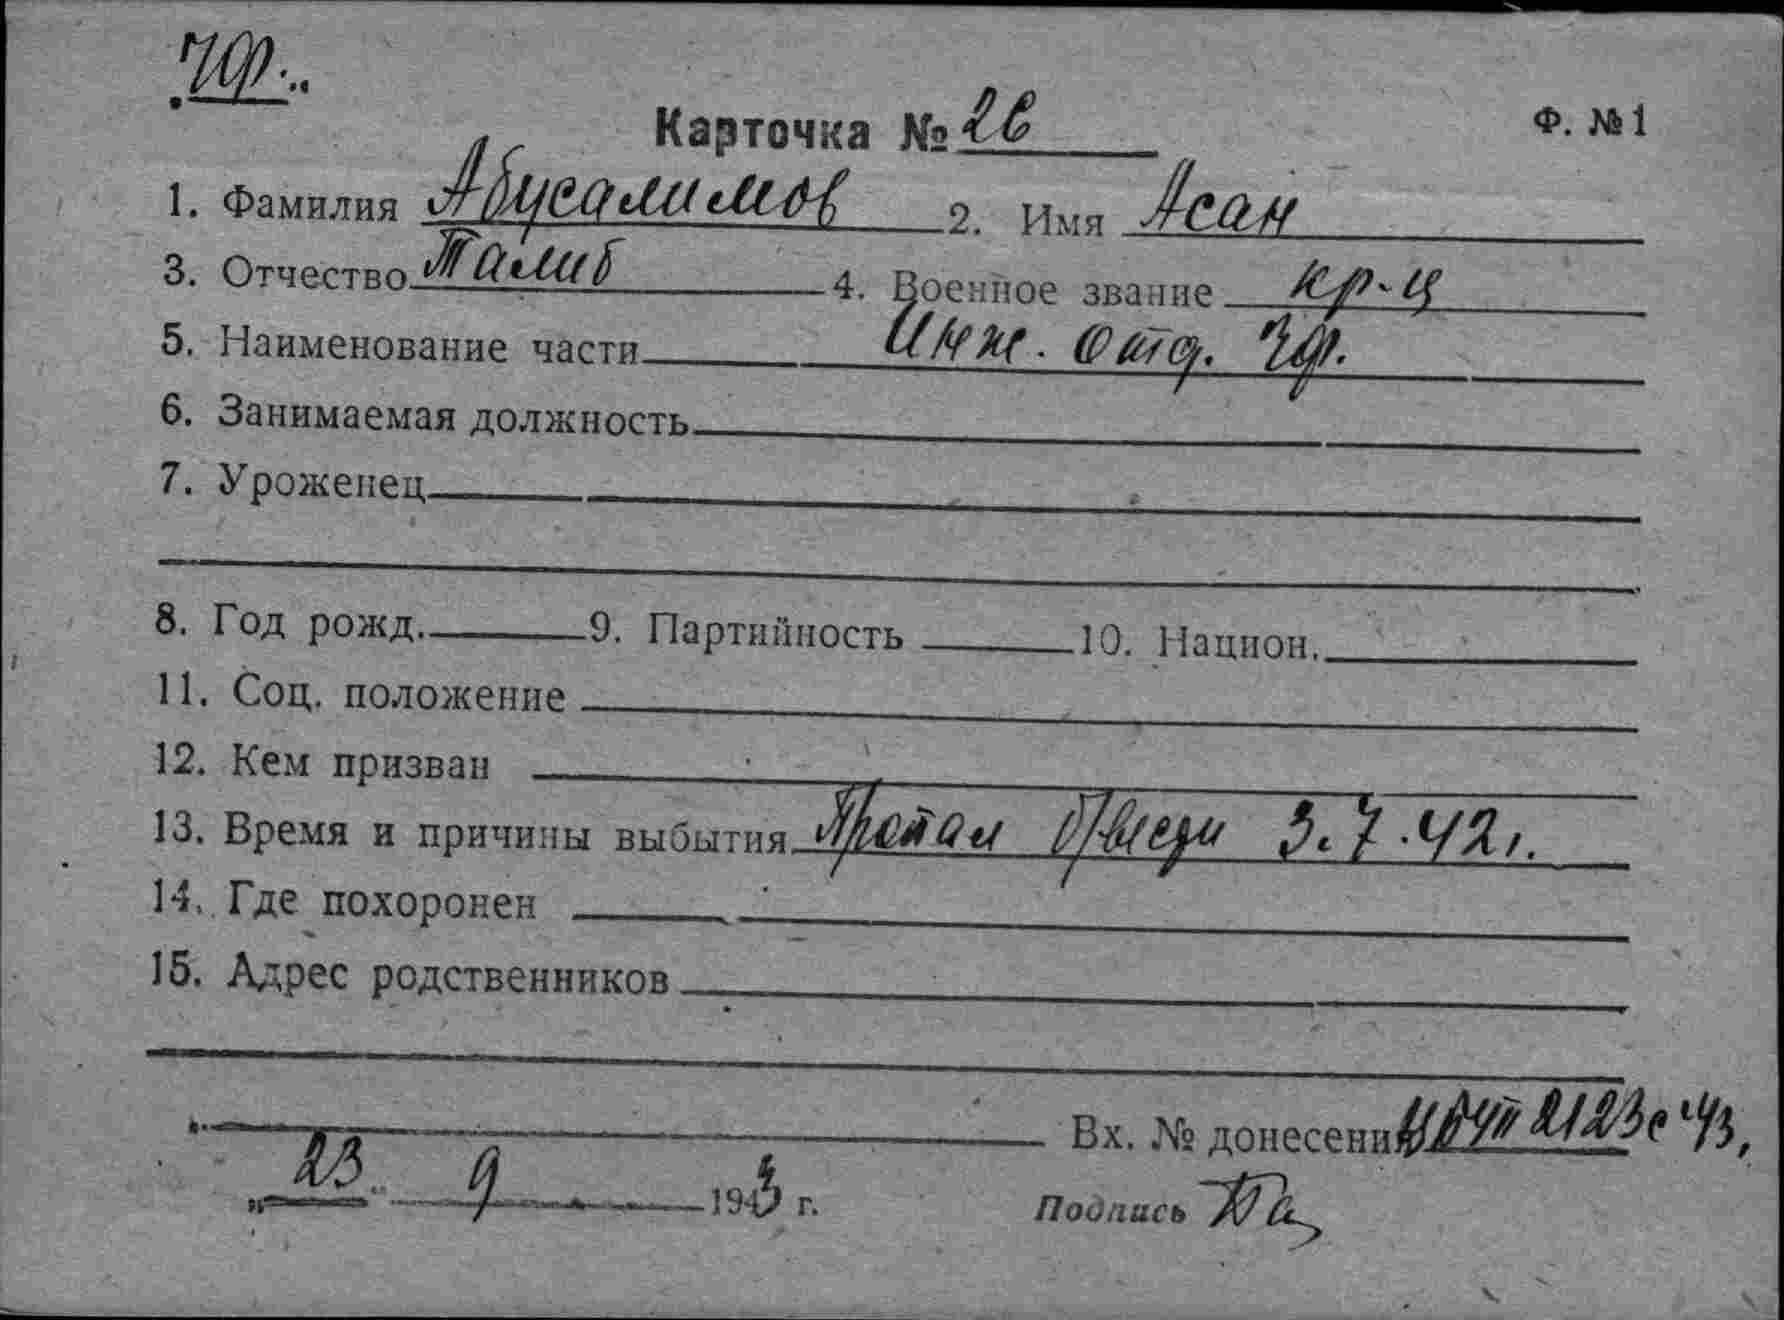 ЧФ.
Карточка № 26 Ф. №1
1. Фамилия Абусалимов 2. Имя Асан
3. Отчество Талиб 4. Военное звание кр-ц
5. Наименование части Инж. Отд. ЧФ.
6. Занимаемая должность
7. Уроженец
8. Год рожд. 9. Партийность 10. Национ.
11. Соц. положение
12. Кем призван
13. Время и причины выбытия Пропал 3.7.42г.
14. Где похоронен
15. Адрес родственников
Вх. № донесени 2123с 43,
„23" 9 1943 г. Подпись